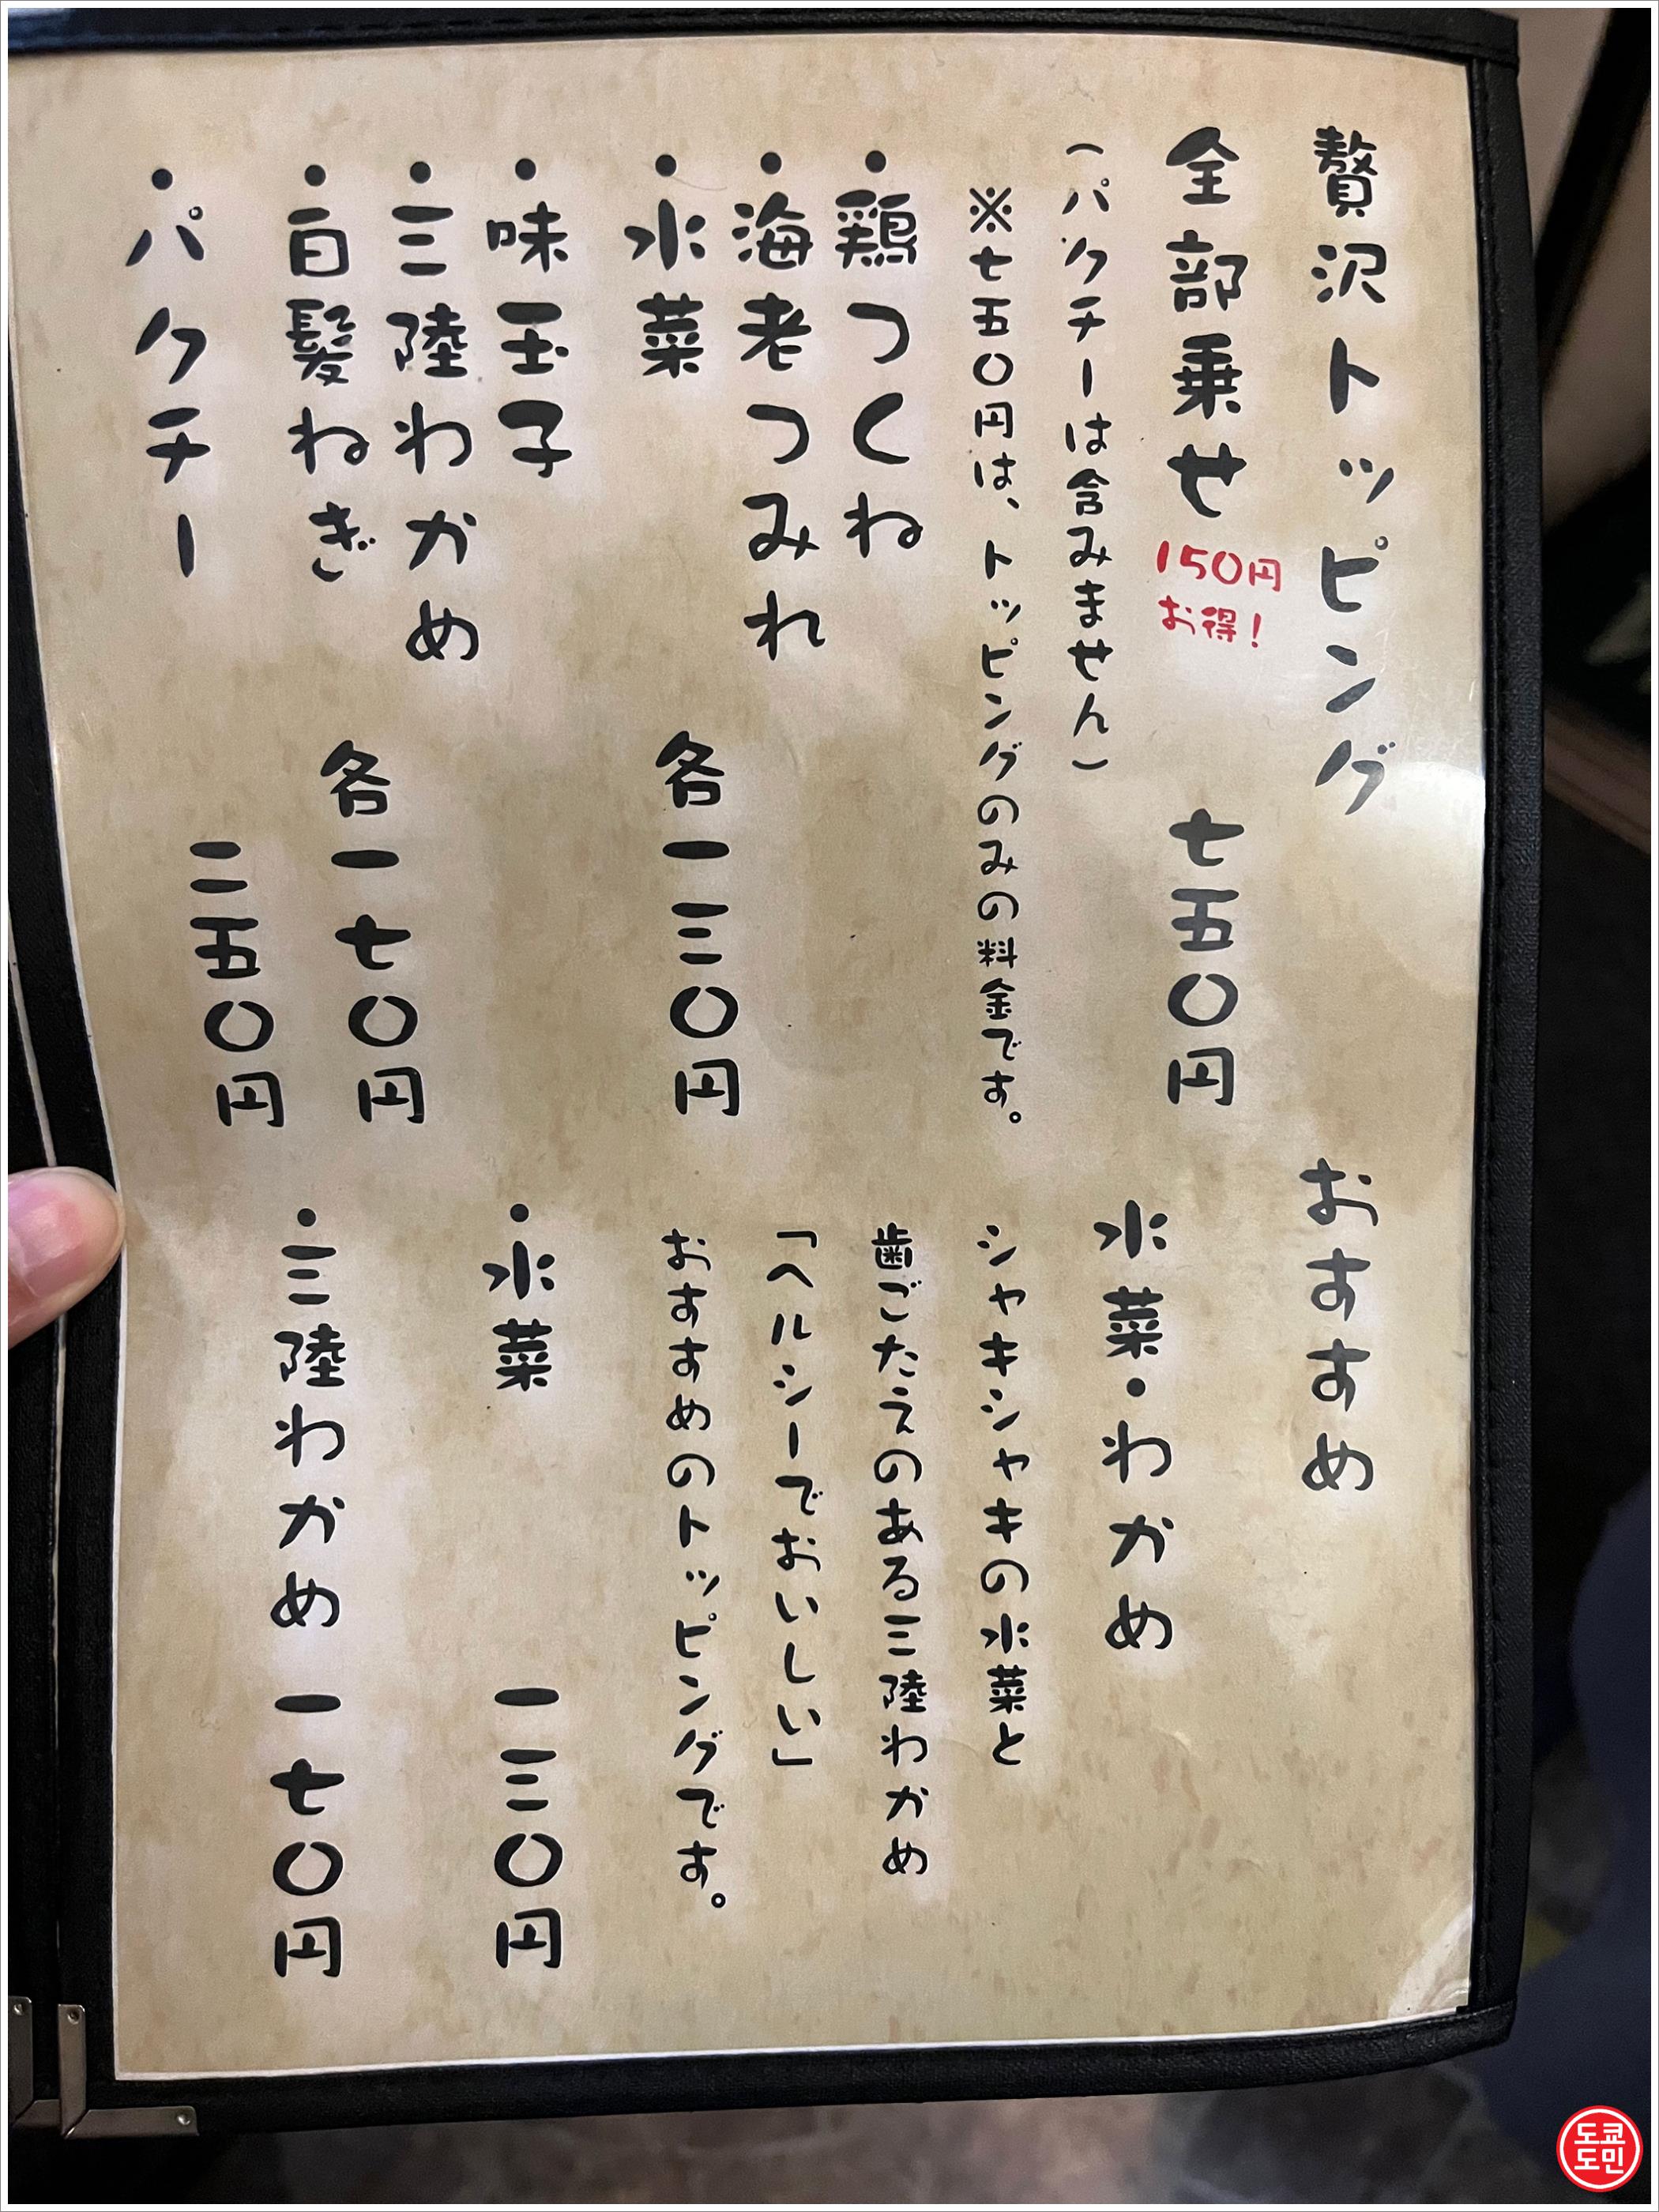 贅沢トッピング
全部乗せ 150円お得! 七五〇円
(パクチーは含みません)
※七五〇円は、トッピングのみの料金です。
・鶏つくね
・海老つみれ
・水菜 各一三〇円
・味玉子
・三陸わかめ
・白髪ねぎ 各一七〇円
・パクチー 二五〇円
おすすめ
水菜・わかめ
シャキシャキの水菜と
歯ごたえのある三陸わかめ
「ヘルシーでおいしい」
おすすめのトッピングです。
・水菜 一三〇円
・三陸わかめ 一七〇円
도쿄
도민